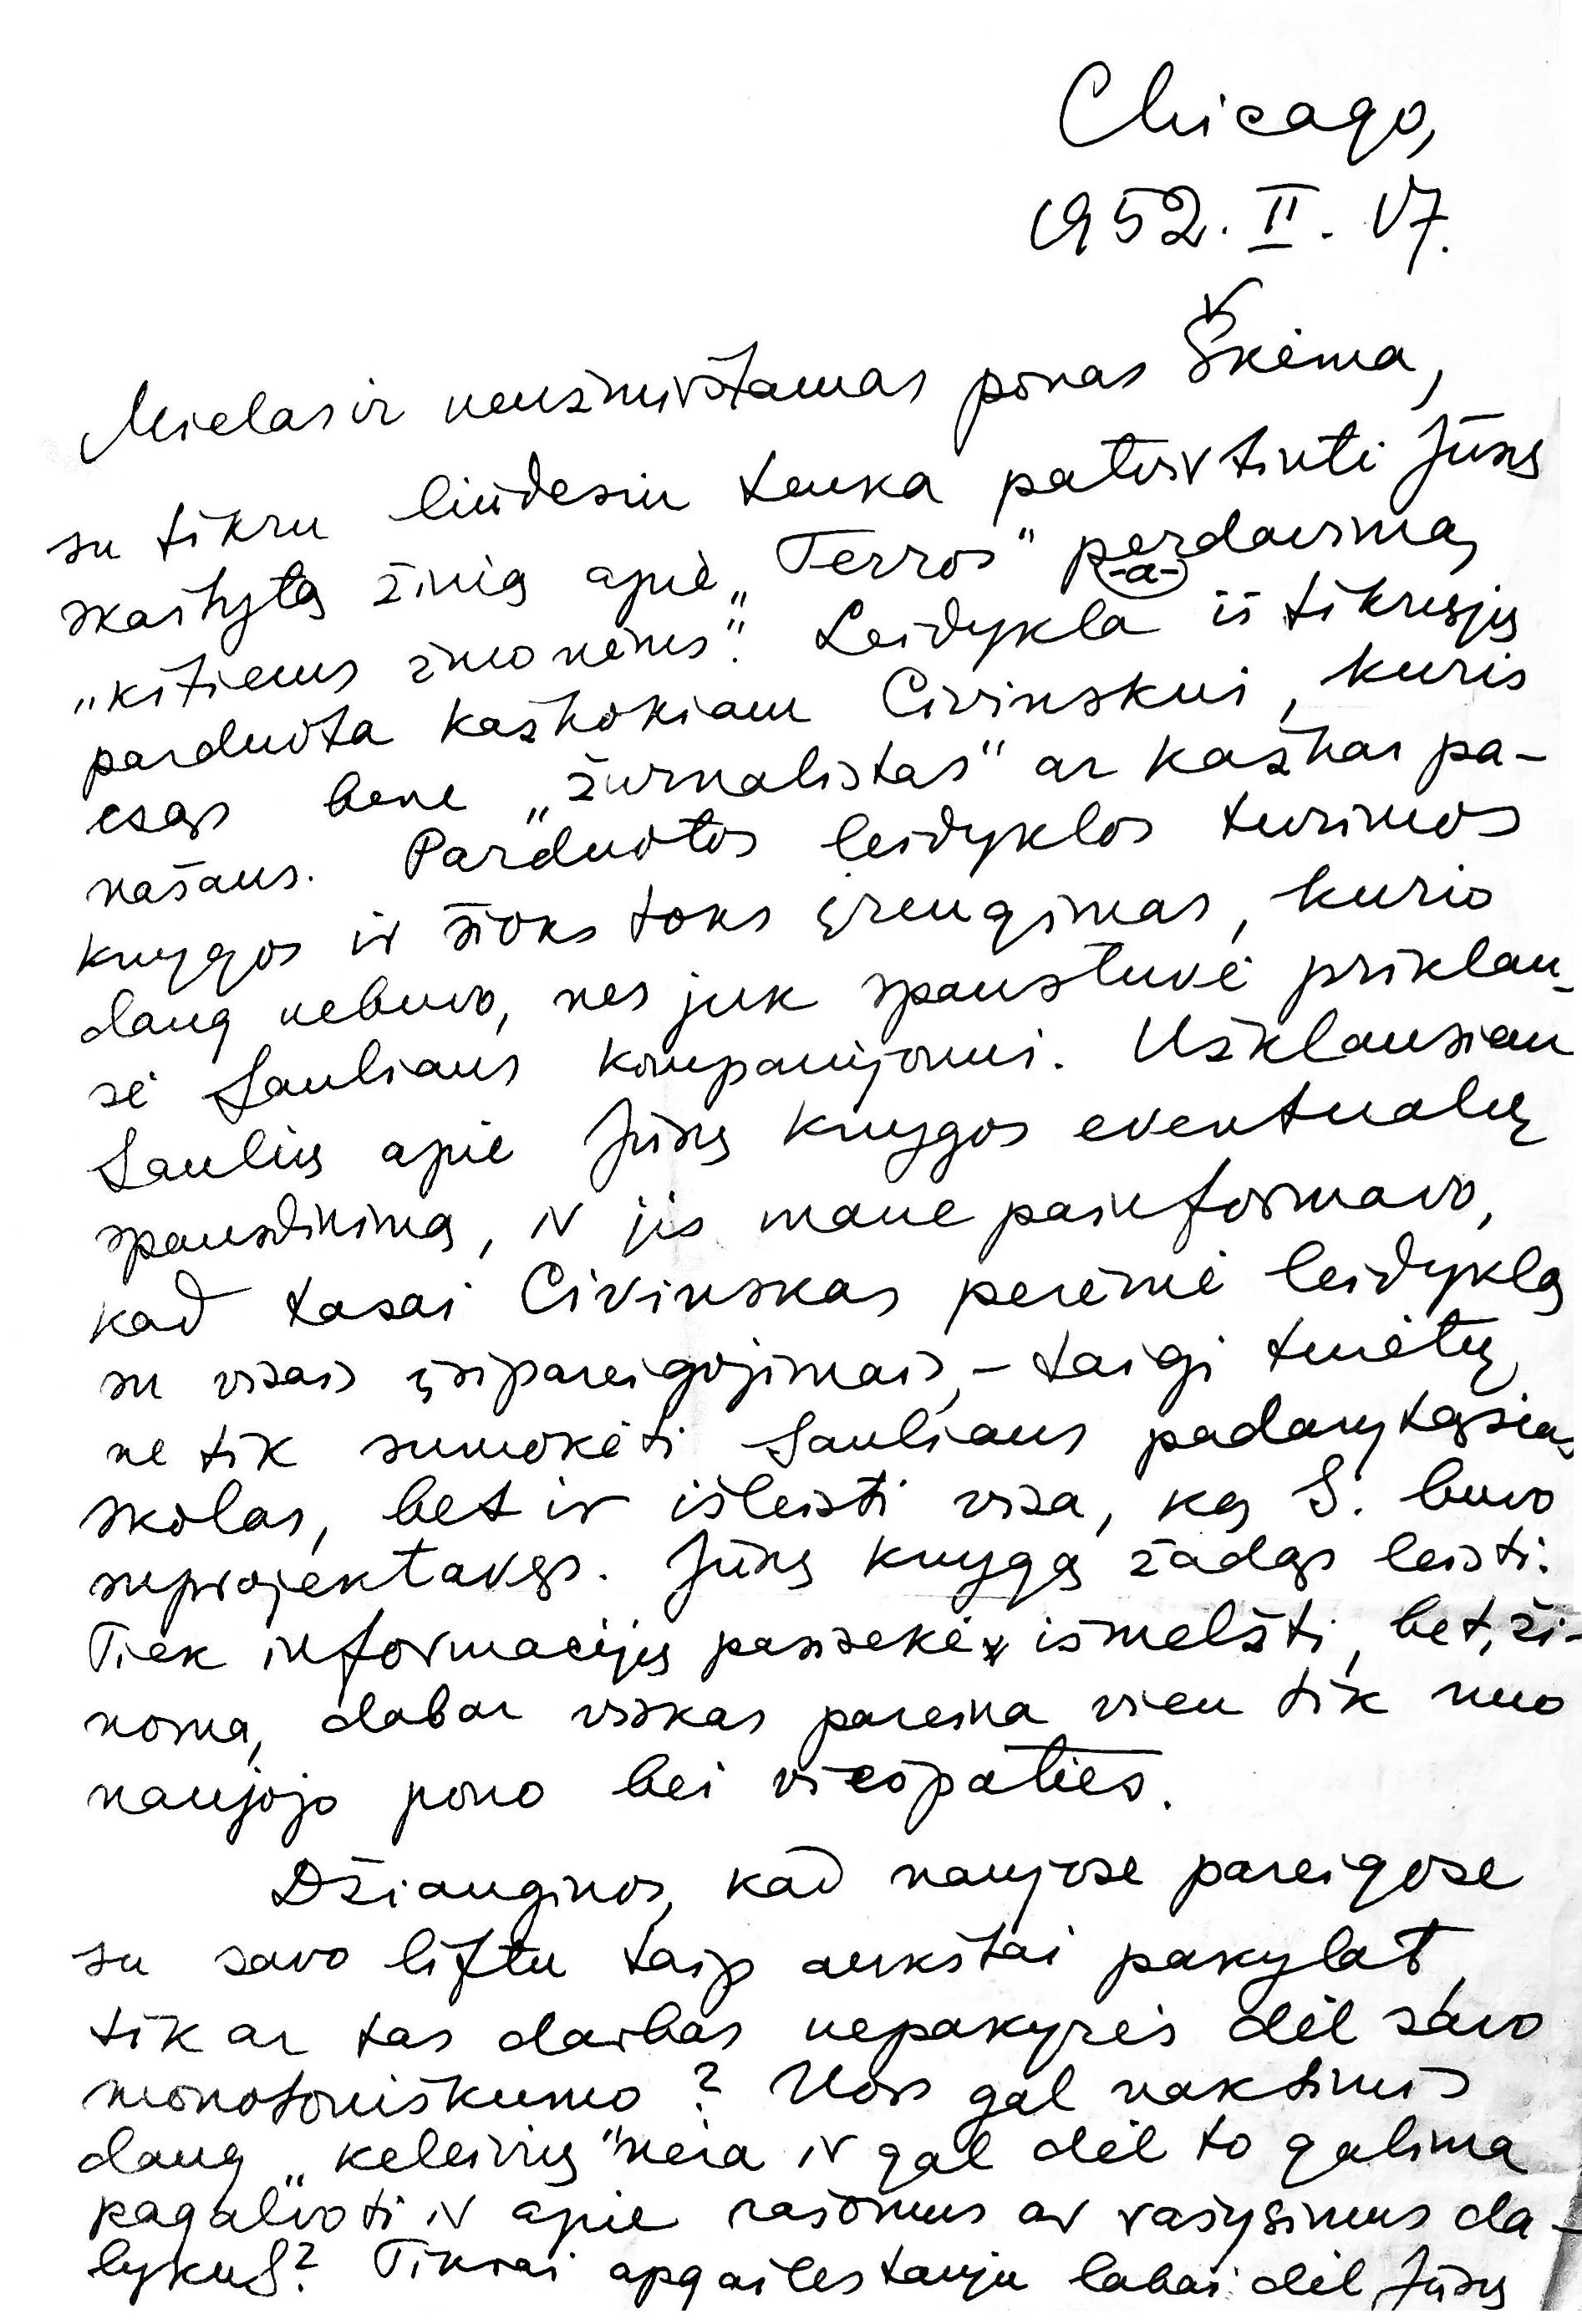 Chicago,
1952. II. 17.
Mielas ir neužmirštamas ponas Škėma,
su tikru liūdesiu tenka patvirtinti Jūsų
skaitytą žinią apie „Terros" pardavimą
„kitiems žmonėms". Leidykla iš tikrųjų
parduota kažkokiam Civinskui, kuris
esąs bene „žurnalistas" ar kažkas pa-
našaus. Parduotos leidyklos turimos
knygos ir šioks toks įrengimas, kurio
daug nebuvo, nes juk spaustuvė priklau-
sė Sauliaus kompanijonui. Užklausiau
Saulių apie Jūsų knygos eventualų
spausdinimą, ir jis mane painformavo,
kad tasai Civinskas perėmė leidyklą
su visais įsipareigojimais, – taigi turėtų
ne tik sumokėti Sauliaus padarytąsias
skolas, bet ir išleisti visa, ką S. buvo
suprojektavęs. Jūsų knygą žadąs leisti.
Tiek informacijų pasisekė išmelžti, bet, ži-
noma, dabar viskas pareina vien tik nuo
naujojo pono bei viešpaties.
Džiaugiuos, kad naujose pareigose
su savo liftu taip aukštai pakylat,
tik ar tas darbas nepakyrės dėl savo
monotoniškumo? Nors gal naktimis
daug „keleivių" nėra ir gal dėl to galima
pagalvoti ir apie rašomus ar rašysimus da-
lykus? Tikrai apgailestauju labai dėl Jūsų